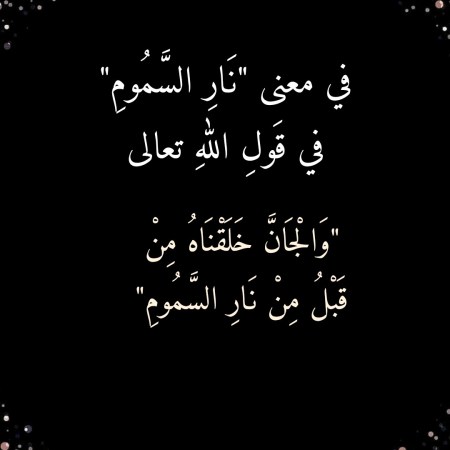 في معنى "نَارِ السَّمُومِ"
في قَولِ اللهِ تعالى
"وَالْجَانَّ خَلَقْنَاهُ مِنْ
قَبْلُ مِنْ نَارِ السَّمُومِ"